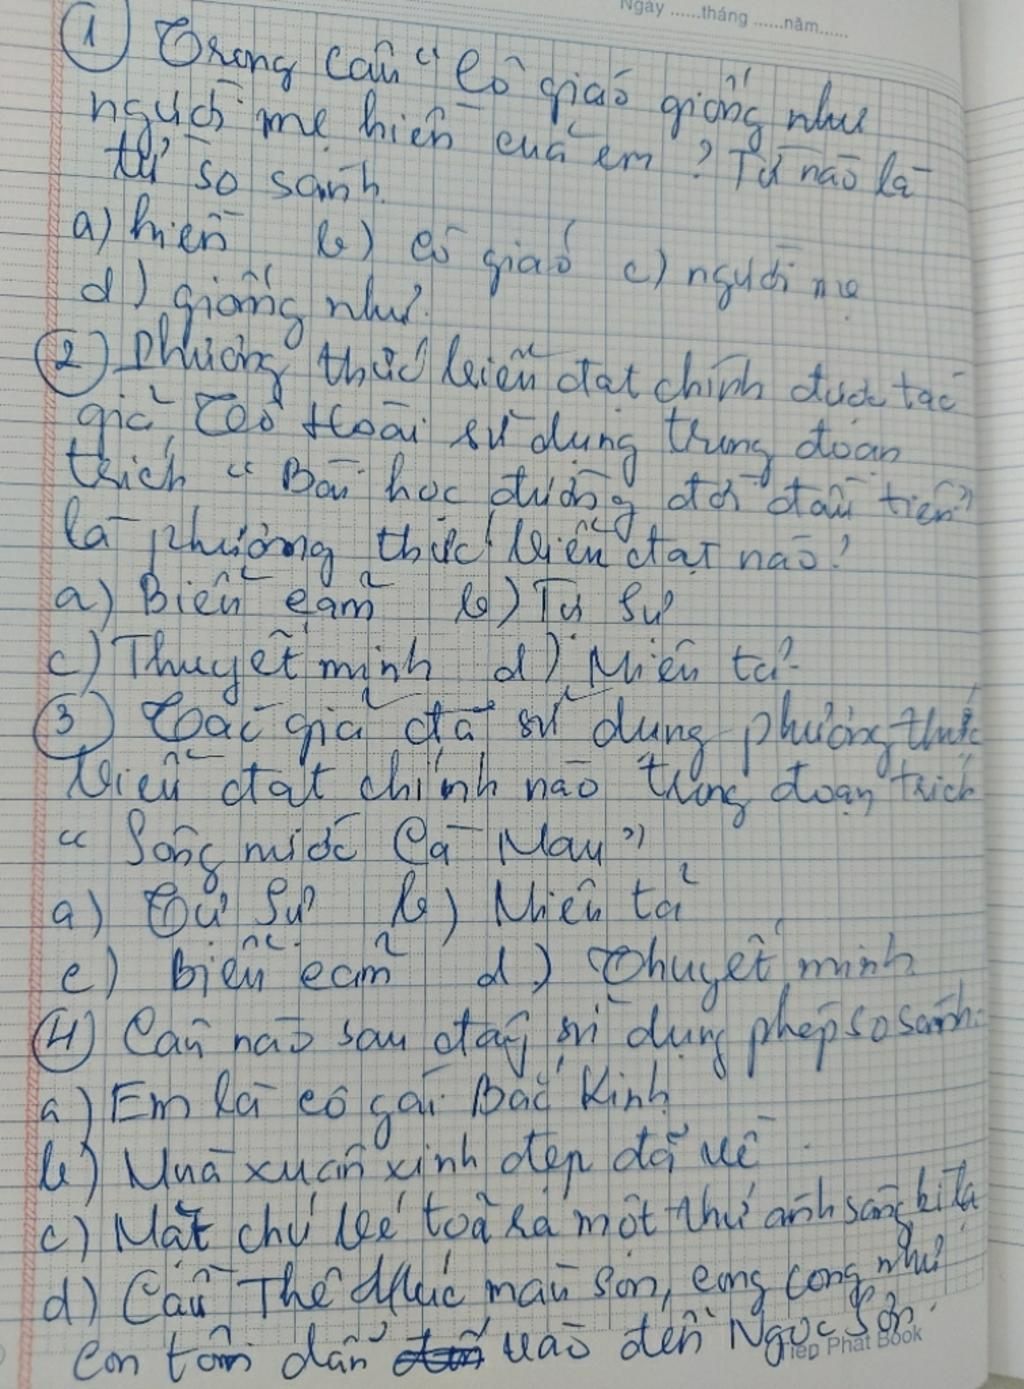 Ngày ......tháng ......năm......
① Trong câu "Cô giáo giống như
người mẹ hiền của em ? Từ nào là
từ so sánh.
a) hiền b) cô giáo c) người mẹ
d) giống như.
② Phương thức biểu đạt chính được tác
giả Tô Hoài sử dụng trung đoạn
trích " Bài học đường đời đầu tiên"
là phương thức biểu đạt nào?
a) Biểu cảm b) Tự sự
c) Thuyết minh d) Miêu tả
③ Tác giả đã sử dụng phương thức
biểu đạt chính nào trung đoạn trích
" Sông nước Cà Mau "
a) Tự sự b) Miêu tả
c) Biểu cảm d) Thuyết minh
④ Câu nào sau đây sử dụng phép so sánh.
a) Em là cô gái Bắc Kinh
b) Mùa xuân xinh đẹp đã về.
c) Mắt chú bé toả ra một thứ ánh sáng kì lạ
d) Cầu Thê Húc màu son, cong cong như
con tôm dẫn vào đền Ngọc Sơn.
Tiep Phat Book